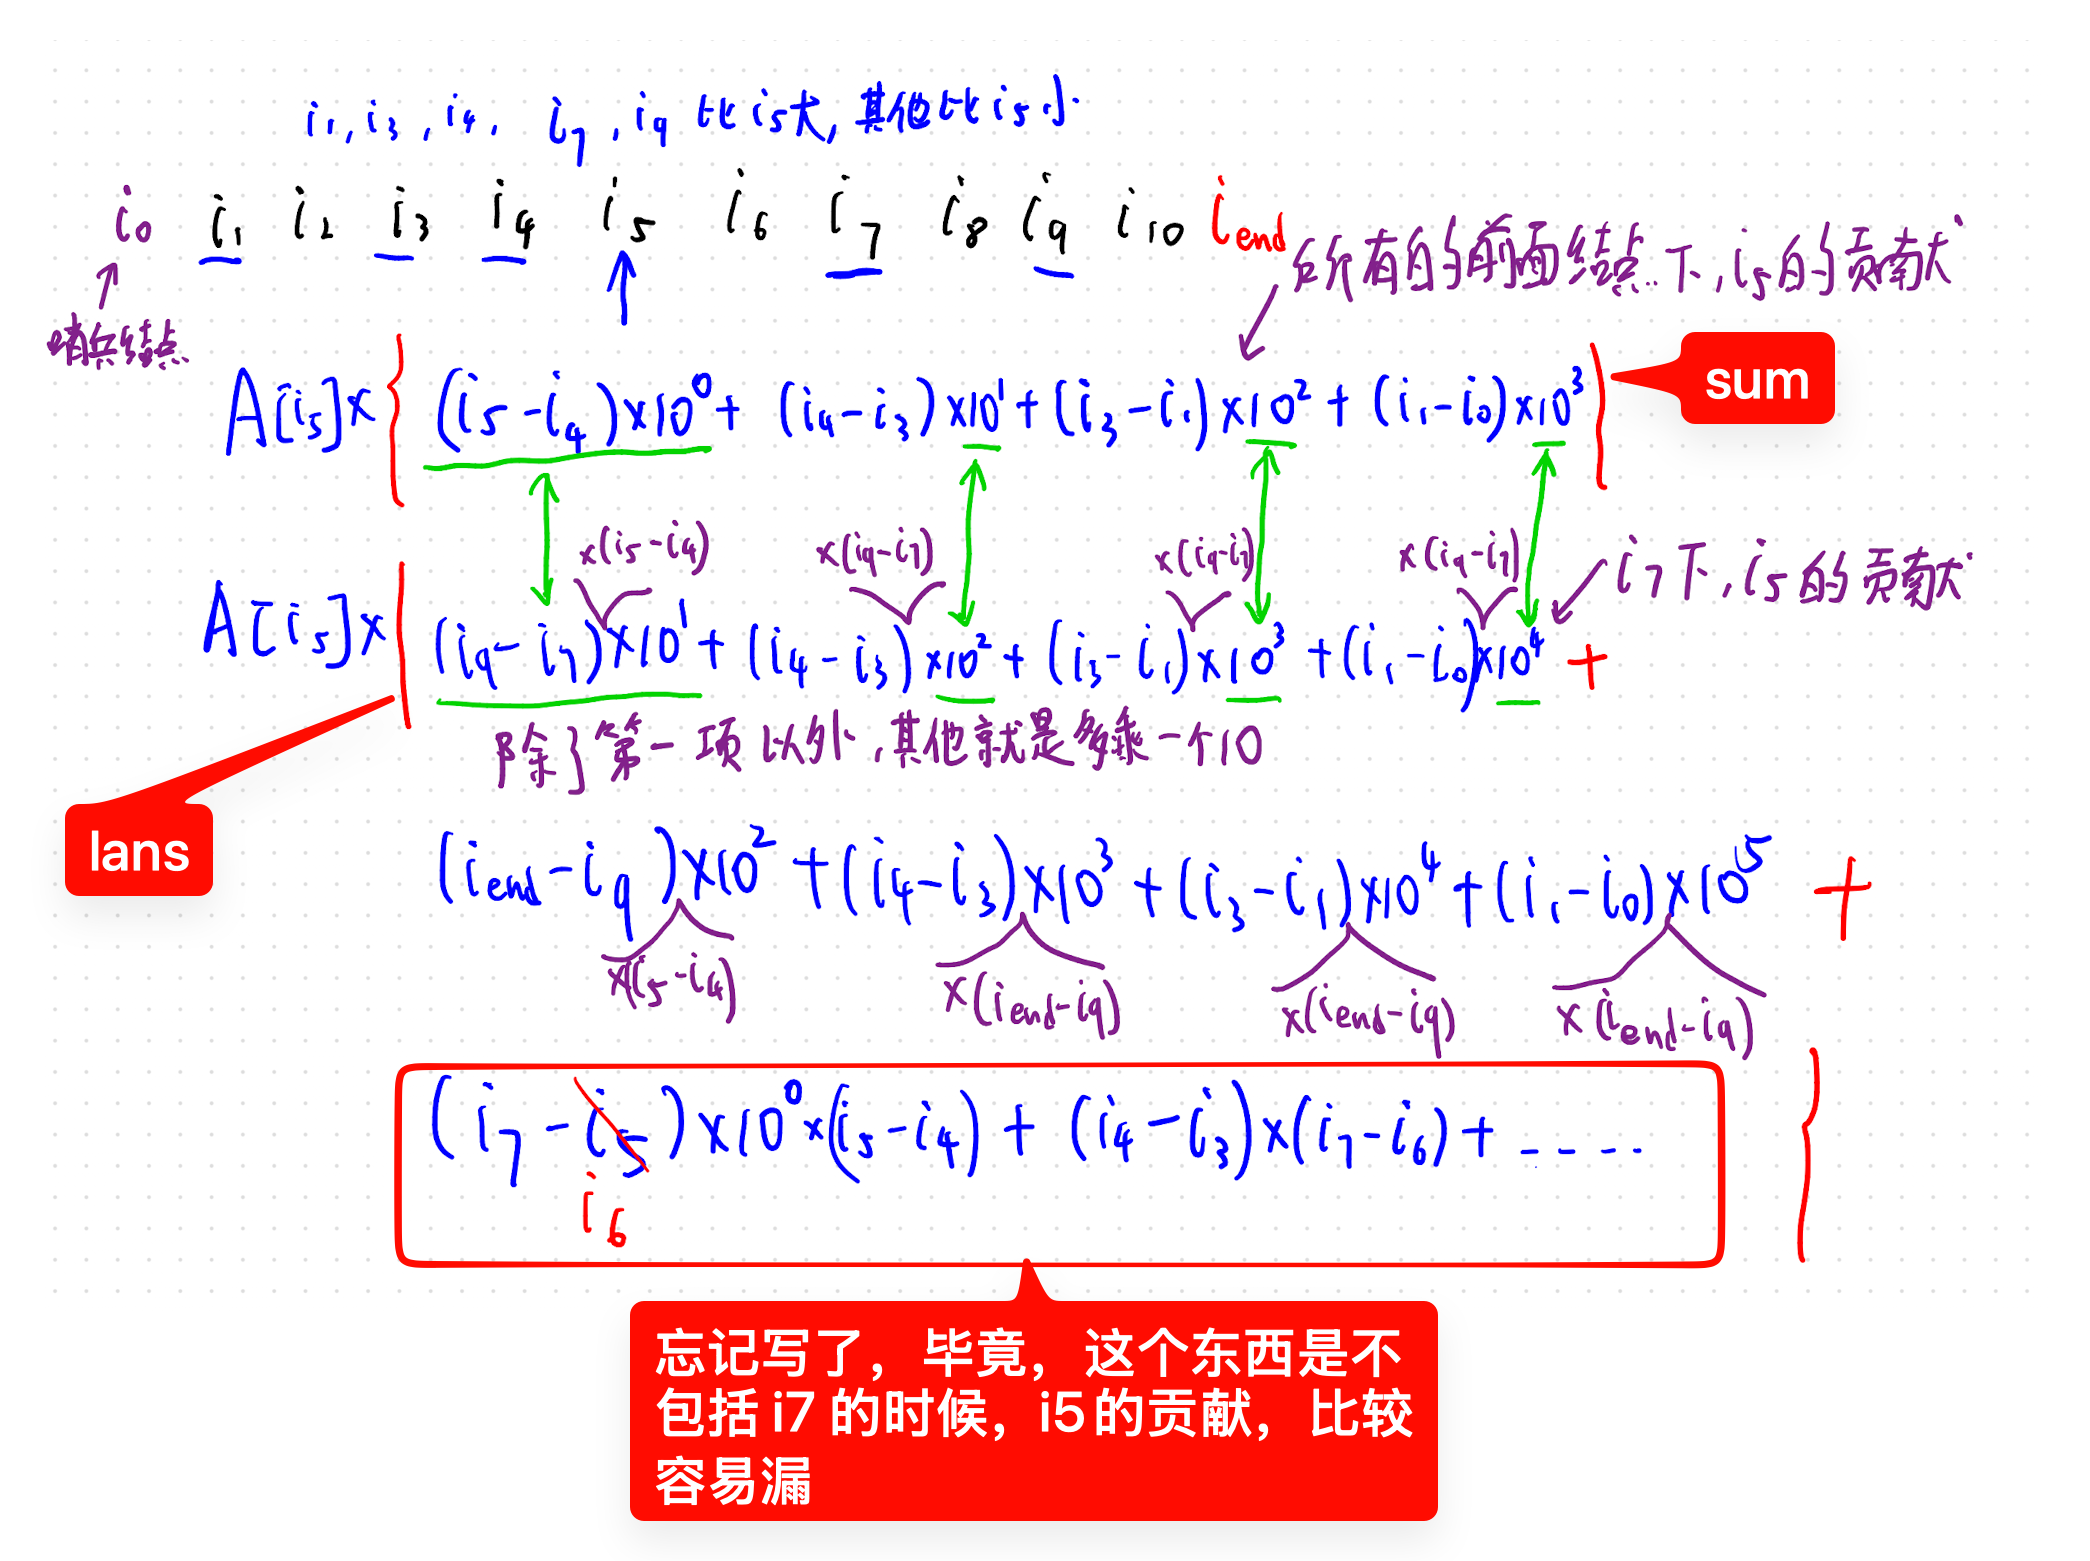 i₁, i₃, i₄, i₇, i₉ 比 i₅大, 其他比 i₅小
i₀ i₁ i₂ i₃ i₄ i₅ i₆ i₇ i₈ i₉ i₁₀ i_end
所有的前面结点下, i₅的贡献
哨兵结点
A[i₅]× { (i₅-i₄)×10⁰+ (i₄-i₃)×10¹+(i₃-i₁)×10²+(i₁-i₀)×10³
sum
×(i₅-i₄) ×(i₉-i₇) ×(i₉-i₇) ×(i₉-i₇)
i₇下, i₅的贡献
A[i₅]× (i₉-i₇)×10¹+(i₄-i₃)×10²+(i₃-i₁)×10³+(i₁-i₀)×10⁴ +
除了第一项以外, 其他就是多乘一个10
lans
(i_end-i₉)×10²+(i₄-i₃)×10³+(i₃-i₁)×10⁴+(i₁-i₀)×10⁵ +
×(i₅-i₄) ×(i_end-i₉) ×(i_end-i₉) ×(i_end-i₉)
(i₇-i₅)×10⁰×(i₅-i₄)+(i₄-i₃)×(i₇-i₆)+ ..... }
i₆
忘记写了，毕竟，这个东西是不
包括 i7 的时候，i5 的贡献，比较
容易漏